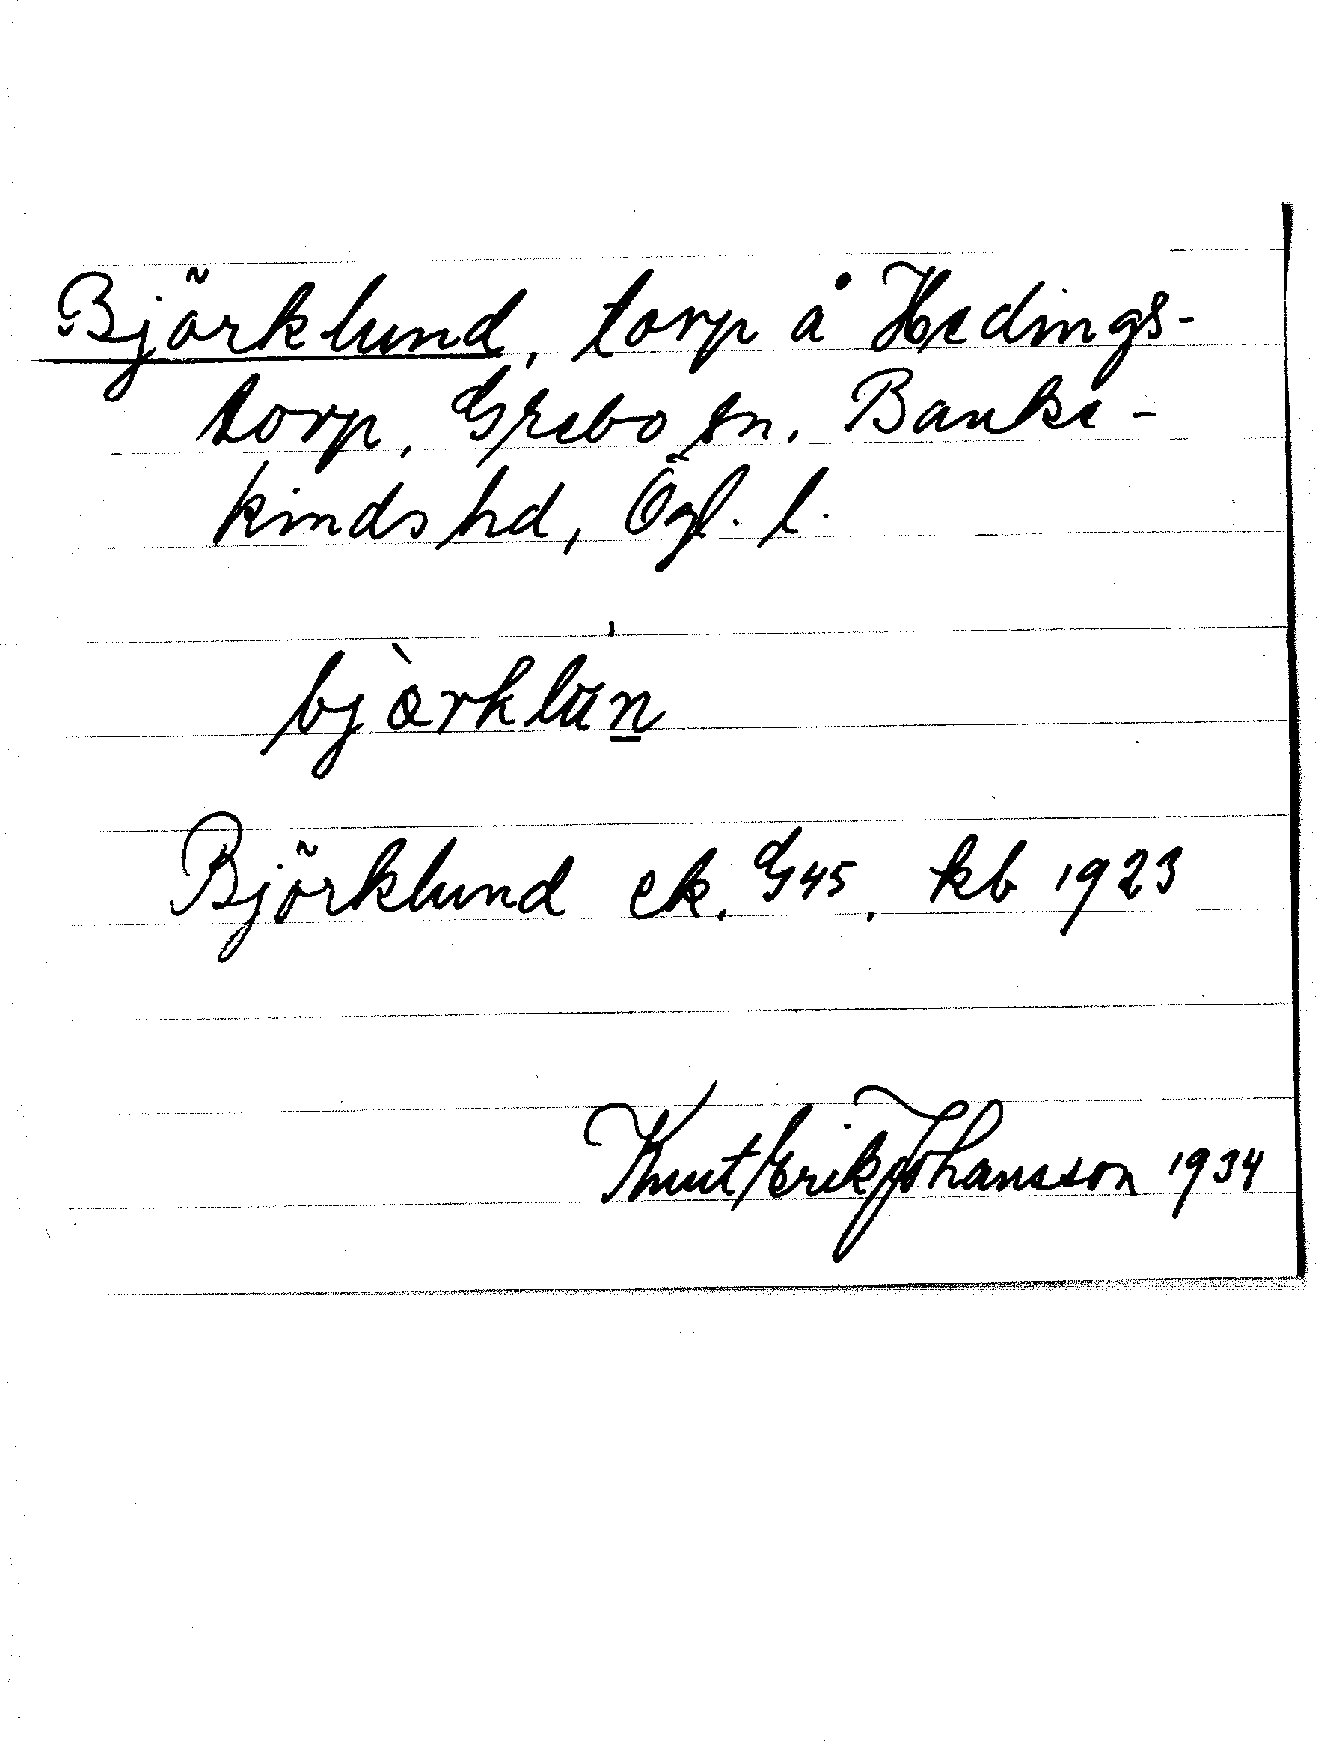 Björklund, torp å Hedings-
torp, Grebo sn, Banke-
kinds hd, Ögl. l.
bjὰrklun
Björklund ek. G45. kb 1923
Knut Erik Johansson 1934